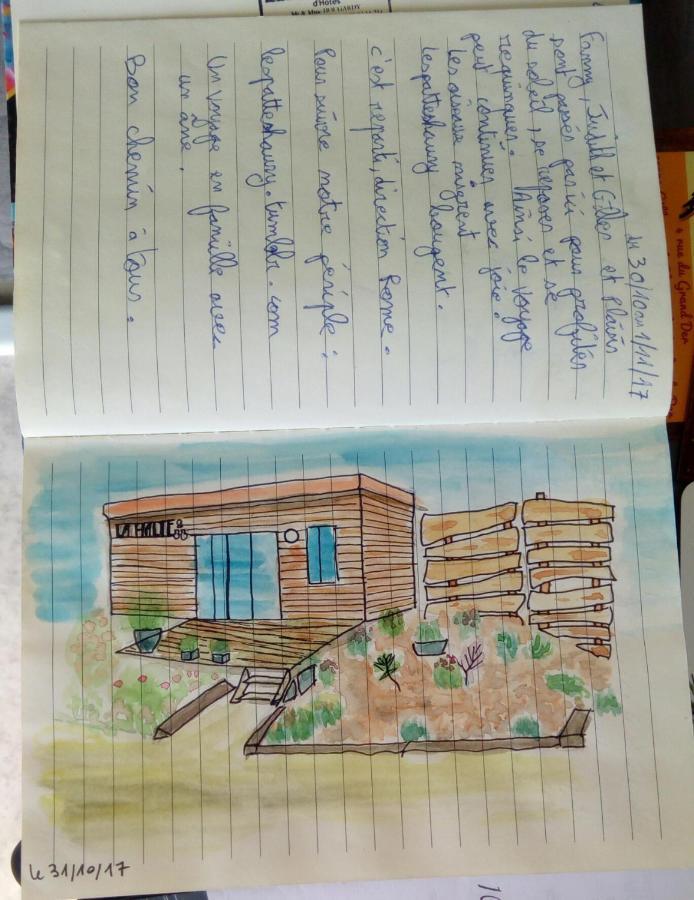 du 30/10 au 1/11/17
Fanny, Judith et Gilles et
sont passés par ici pour profiter
du soleil, se reposer et se
requinquer. Ainsi le voyage
peut continuer avec joie.
Les oiseaux migrent
lespatteshaury bougent.
c'est reparti, direction Rome.
Pour suivre notre périple :
lespatteshaury.tumblr.com
Un voyage en famille avec
un âne.
Bon chemin à tous.
LA HALTE
le 31/10/17
d'Hôtes
4 rue du Grand